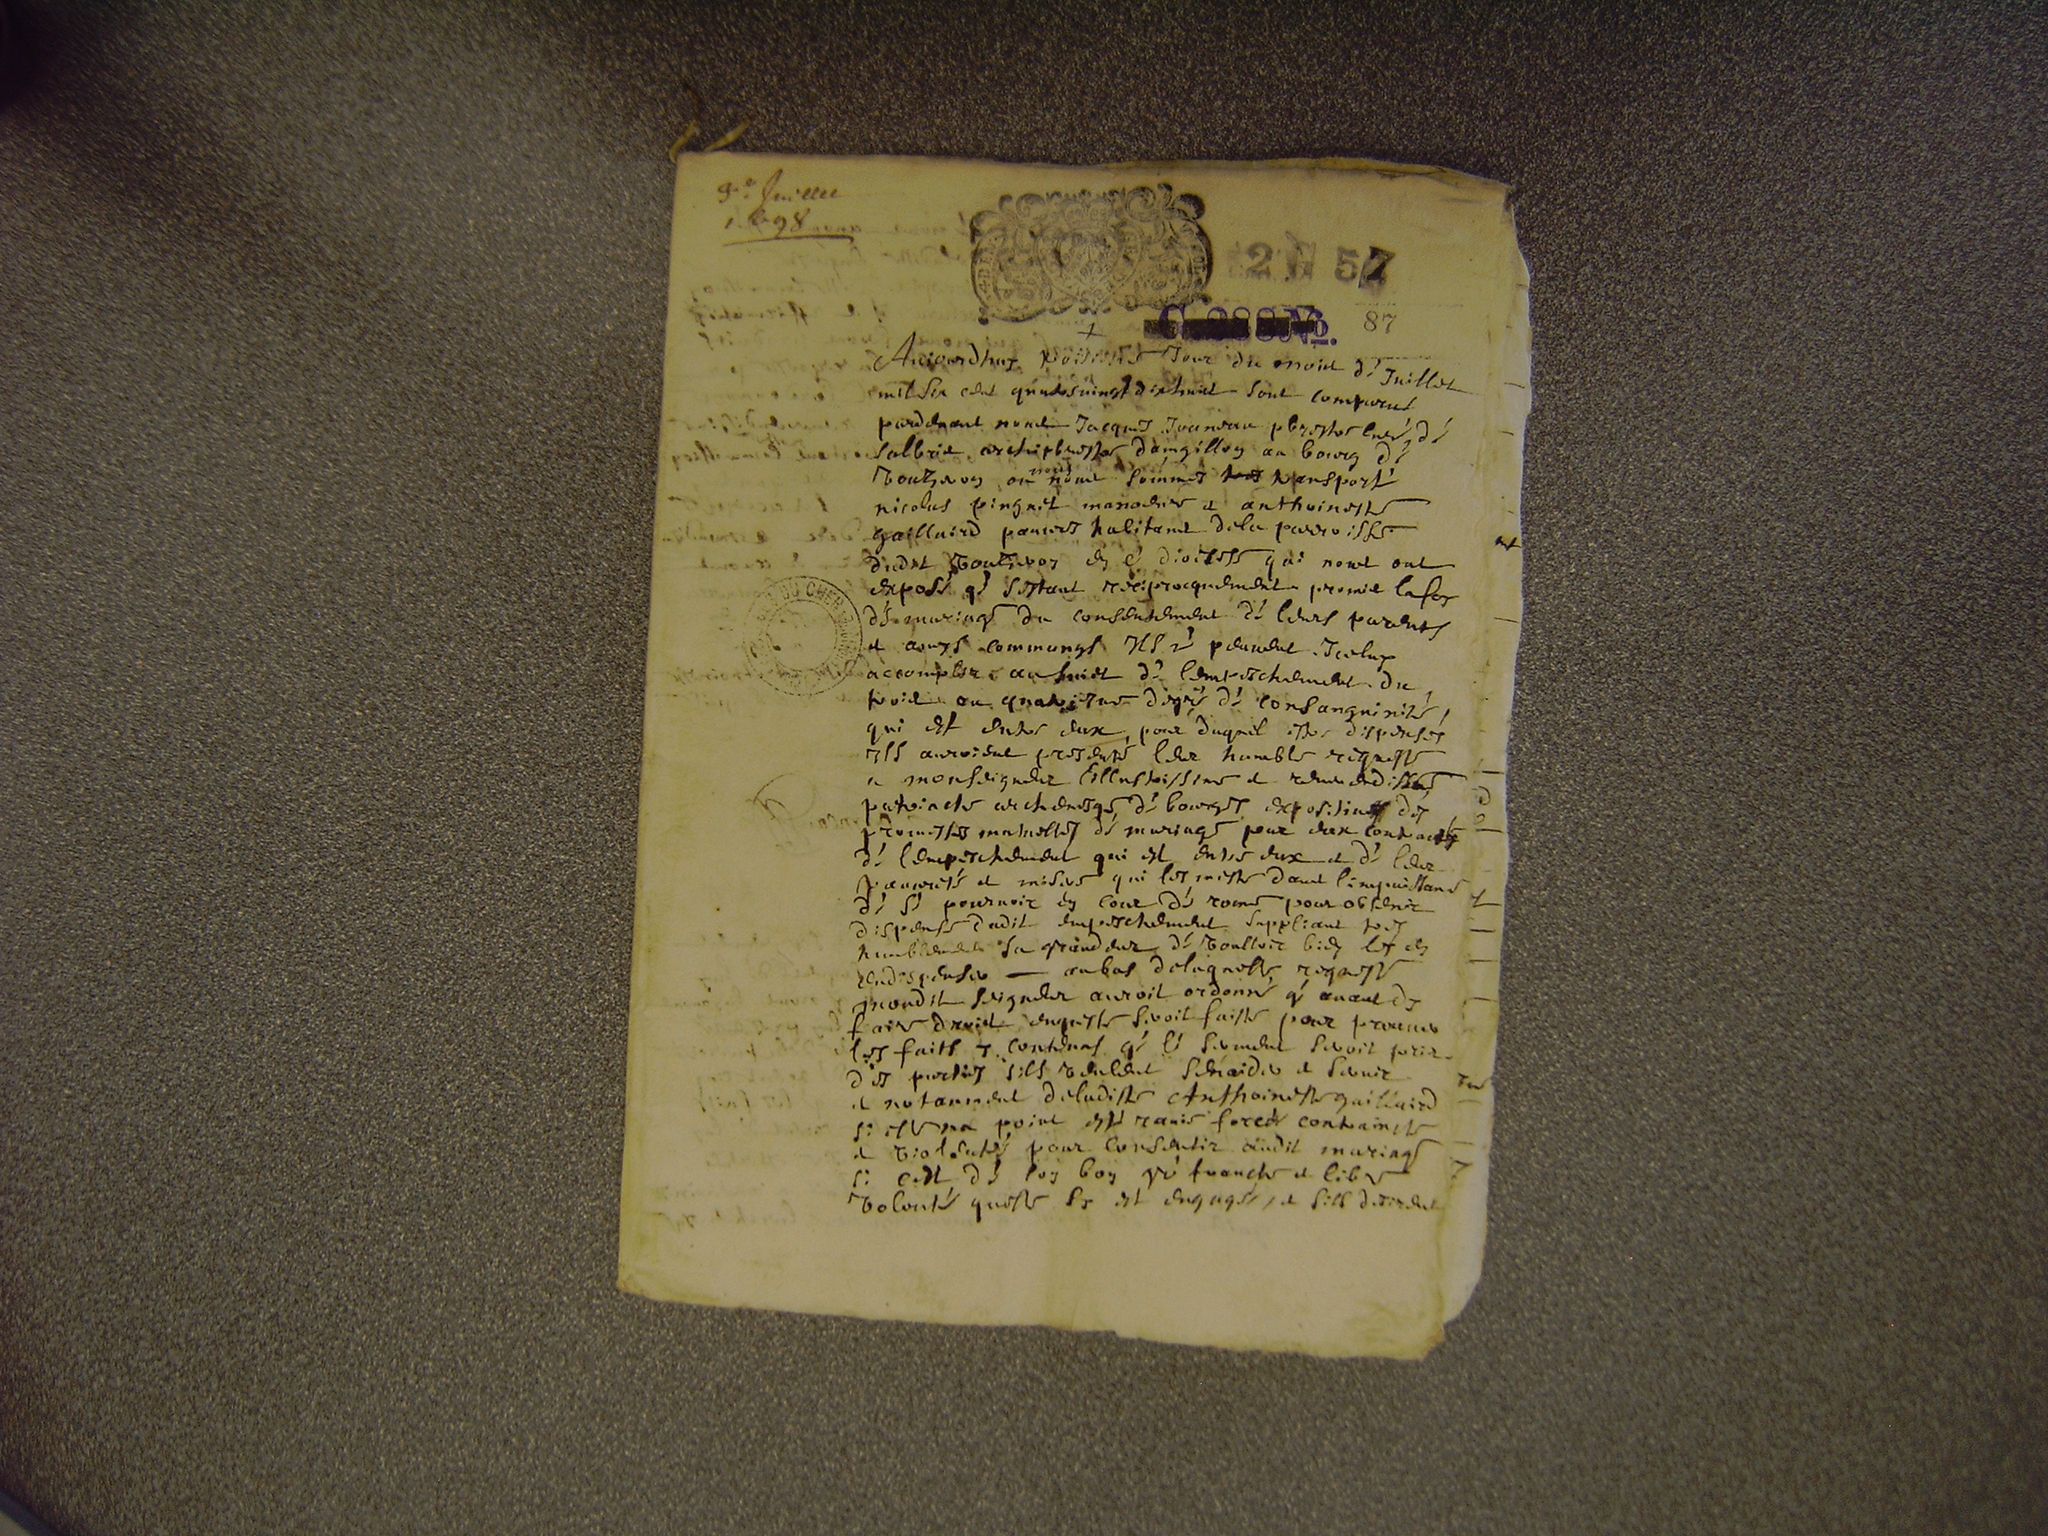 Juillet
1698
2 57
87
Aujourdhuy troisiesme Jour du mois dé Juillet
mil six cent quatrevingt dixhuit sont comparus
pardevant nous Jacques prestre curé dé
Salbris archiprestre dangillon au bourg dé
ou nous sommes transporté
nicolas pinguet manoeuvre et anthoinette
gaillaird pauvres habitans dela parroisse
dudit en cé diocesse qui nous ont
exposé qé sestant reciproquement promis lafoy
dé mariage du consentement dé leurs parents
et amys communs Ils né peuvent Iceluy
accomplir au suiet dé lempeschement du
trois au quatriesme degré dé consanguinité
qui est entre eux, pour duquel estre dispensés
Ils auroient presenté leur humble requeste
a monseigneur lillustrissime et reverendissime
patriarche archevesqe dé bourges expositive des
promesses mutuelles dé mariage pour eux contractés
dé lempeschement qui est entre eux et dé leur
pauvreté et misere qui les mette dans limpuissance
dé sé pourvoir en cour dé rome pour obtenir
dispense dudit empeschement suppliant tres
humblement sa grandeur dé vouloir bien les en
dispenser — aubas delaquelle requeste
mondit seigneur auroit ordonné qé avant de
faire droit enqueste seroit faitte pour prouver
les faits y contenus qé lé serment seroit pris
des parties sils veulent sentraider et servir
et notamment deladitte Anthoinette gaillaird
si elle na point esté ravie forcée contrainte
et violentée pour consentir audit mariage
si cest dé son bon gré franche et libre
volonté quelle sy est engagée, et sils desirent